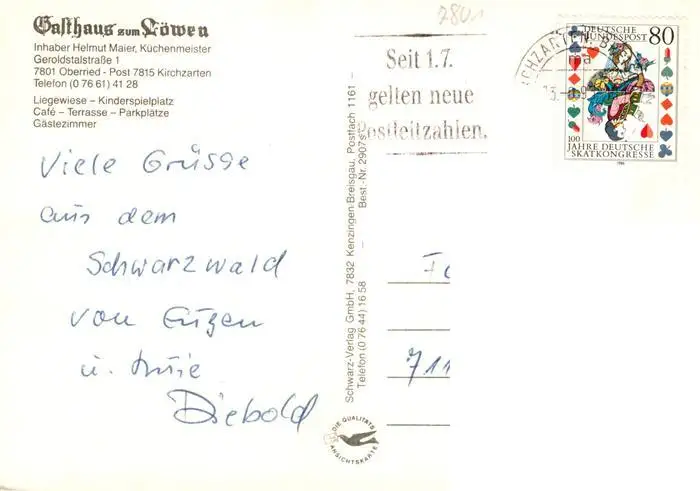 Gasthaus zum Löwen
Inhaber Helmut Maier, Küchenmeister
Geroldstalstraße 1
7801 Oberried - Post 7815 Kirchzarten
Telefon (0 76 61) 41 28
Liegewiese – Kinderspielplatz
Café – Terrasse – Parkplätze
Gästezimmer
Viele Grüsse
aus dem
Schwarzwald
von Eugen
u.
Diebold
Schwarz-Verlag GmbH, 7832 Kenzingen-Breisgau, Postfach 1161 –
Telefon (0 76 44) 16 58 – Best. Nr. 2907
DIE QUALITÄTS
ANSICHTSKARTE
7801
Seit 1.7.
gelten neue
Postleitzahlen.
CHZARTEN
ma
DEUTSCHE
BUNDESPOST 80
100
JAHRE DEUTSCHE
SKATKONGRESSE
1986
711